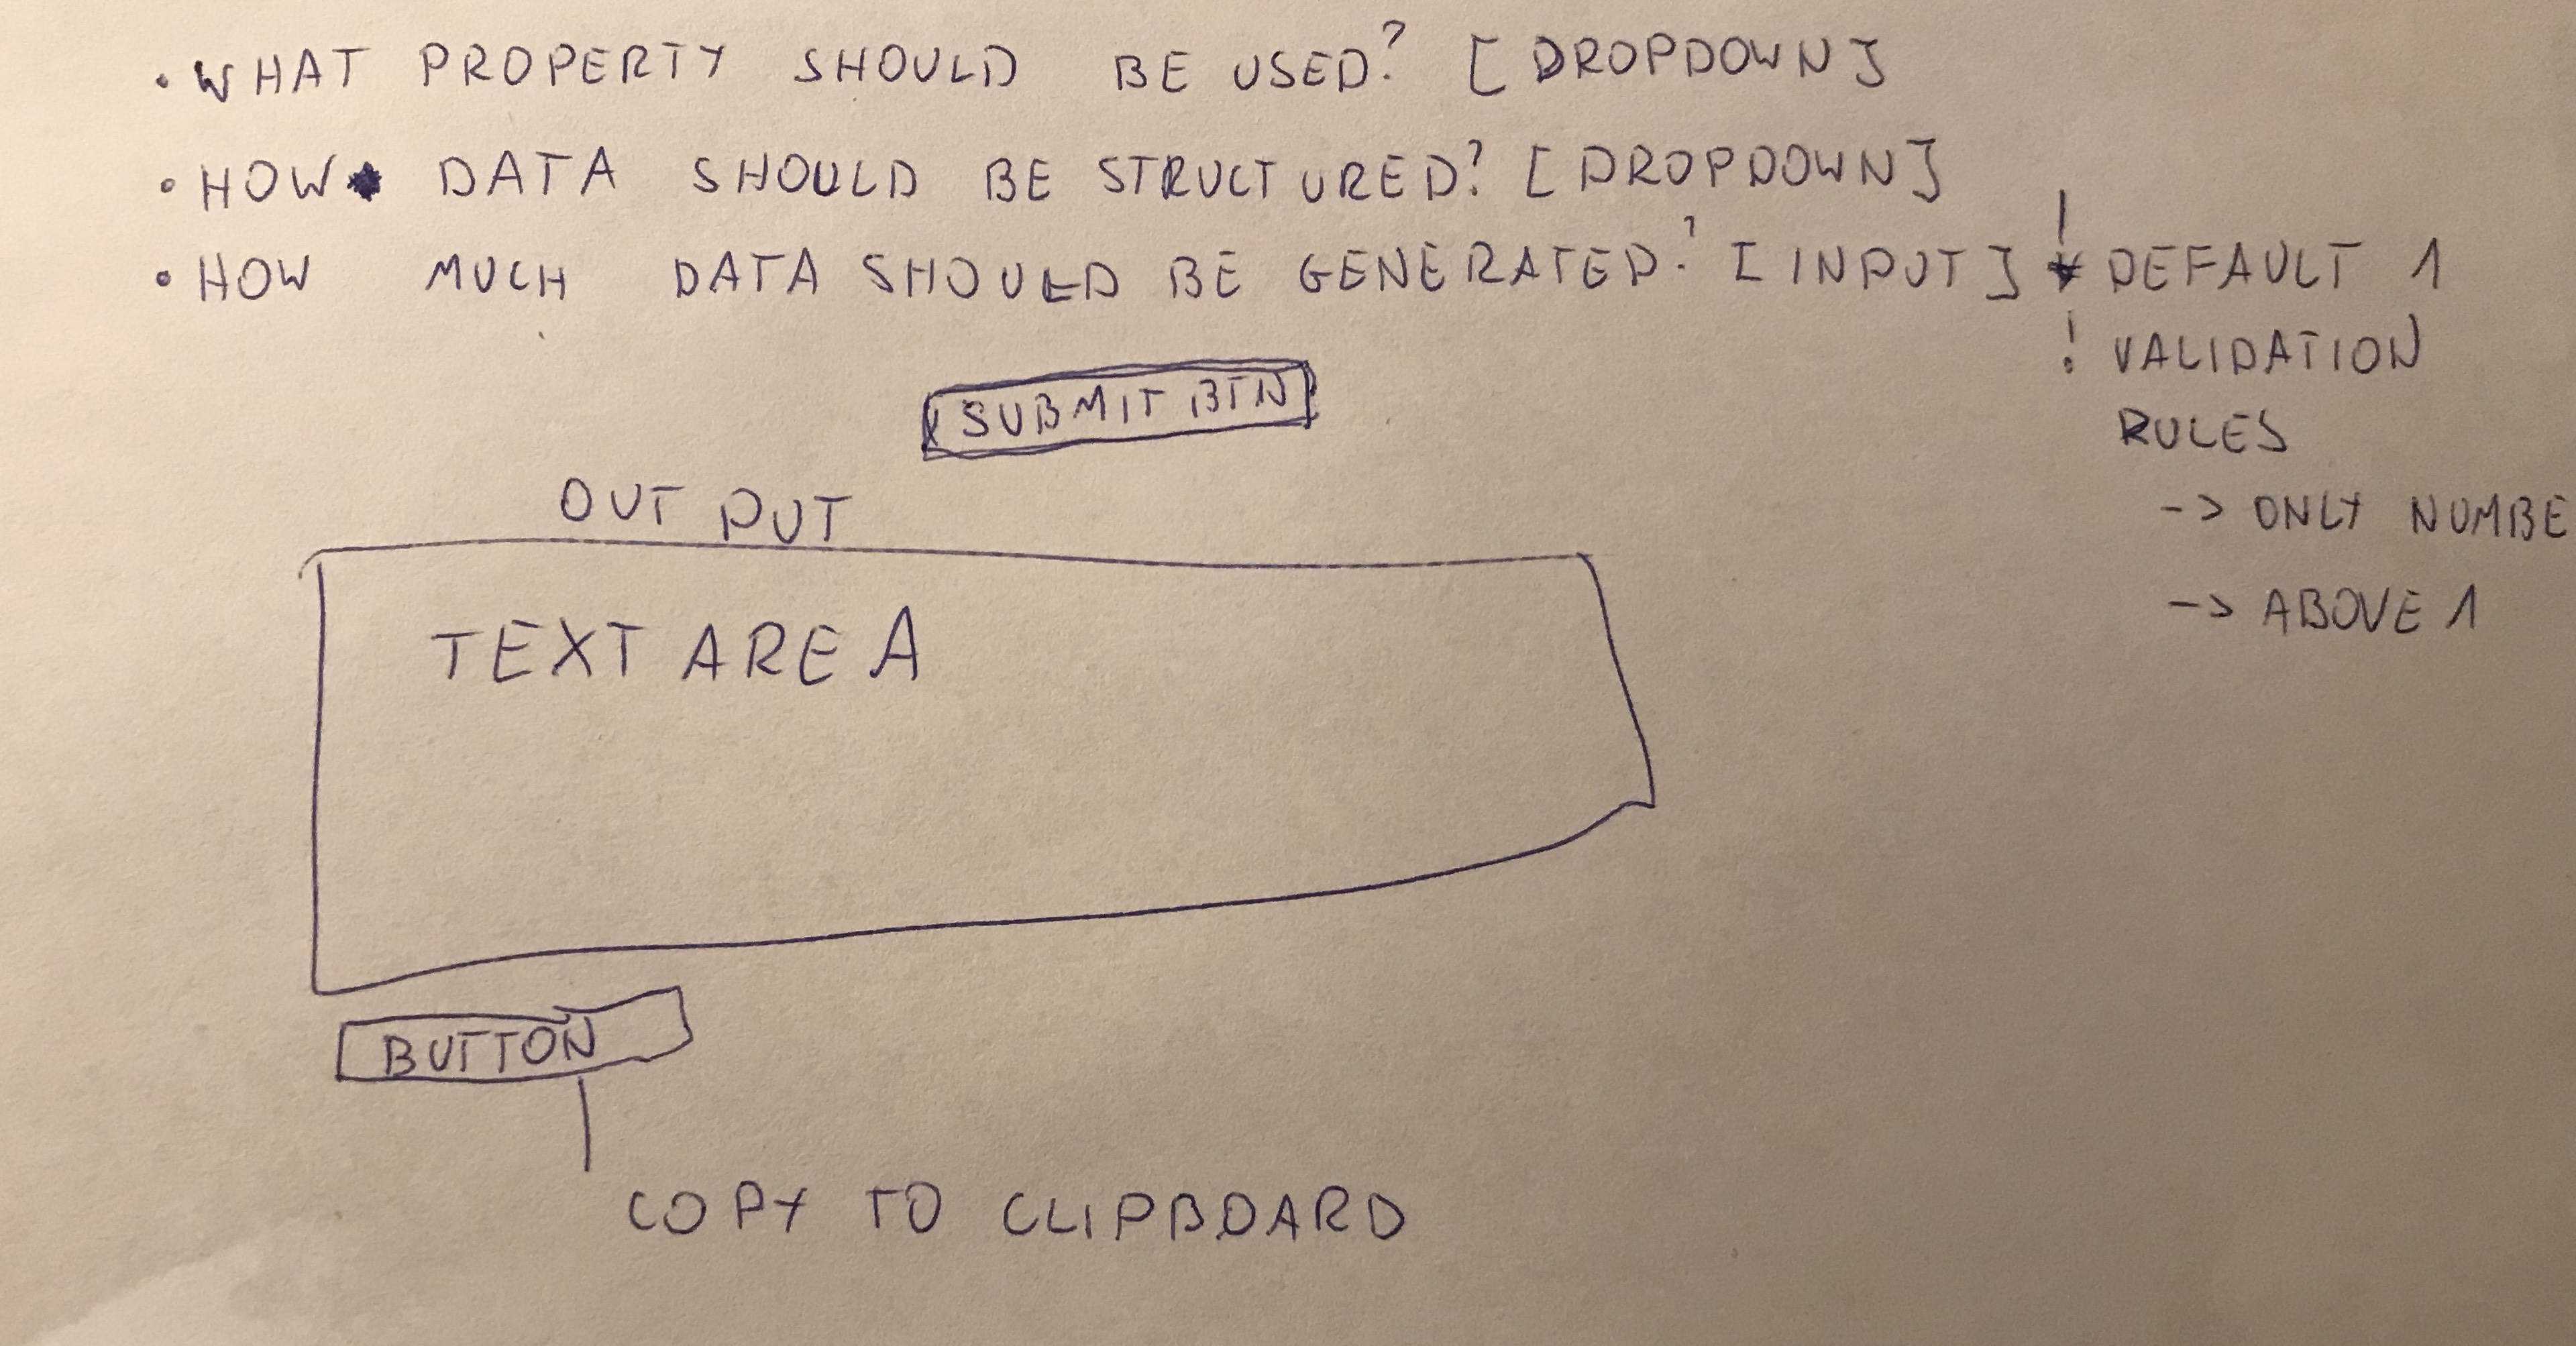 • WHAT PROPERTY SHOULD BE USED? [DROPDOWN]
• HOW DATA SHOULD BE STRUCTURED? [DROPDOWN]
• HOW MUCH DATA SHOULD BE GENERATED? [INPUT] ! DEFAULT 1
! VALIDATION
RULES
-> ONLY NUMBE
-> ABOVE 1
SUBMIT BTN
OUTPUT
TEXT AREA
BUTTON
COPY TO CLIPBOARD